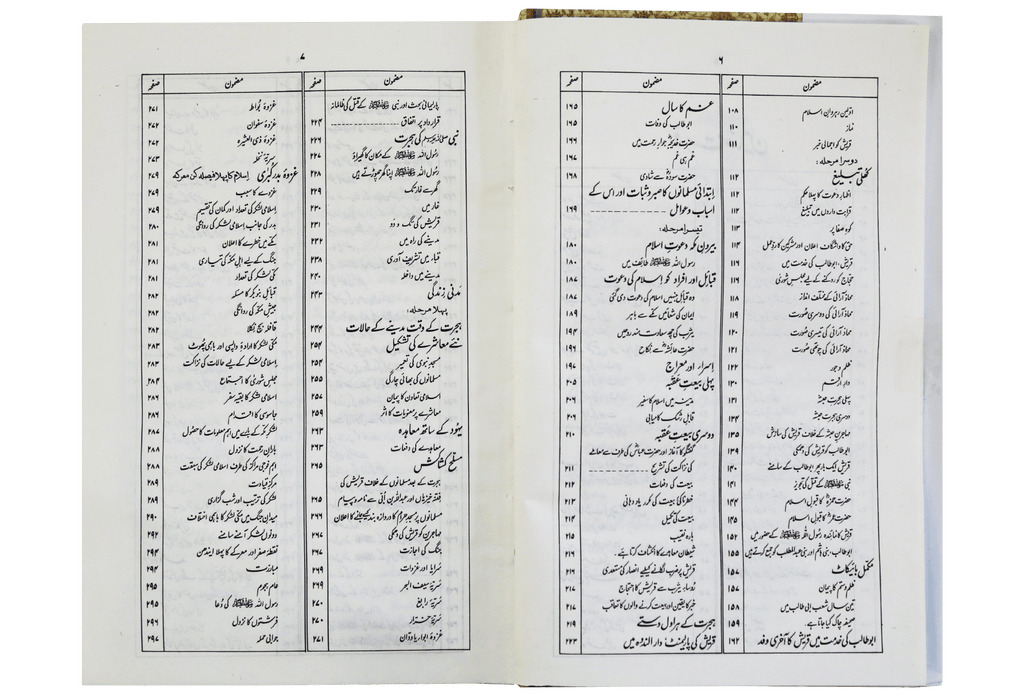 ۶
مضمون صفحہ مضمون صفحہ
اولین رہروانِ اسلام ۱۰۸
نماز ۱۱۰
قریش کو اجمالی خبر ۱۱۱
دوسرا مرحلہ:
کھلی تبلیغ ۱۱۲
اظہارِ دعوت کا پہلا حکم ۱۱۲
قرابت داروں میں تبلیغ ۱۱۲
کوہِ صفا پر ۱۱۳
حق کا واشگاف اعلان اور مشرکین کا ردِّ عمل ۱۱۴
قریش، ابوطالب کی خدمت میں ۱۱۶
حجاج کو روکنے کے لیے مجلسِ شوریٰ ۱۱۶
محاذ آرائی کے مختلف انداز ۱۱۸
محاذ آرائی کی دوسری صورت ۱۱۹
محاذ آرائی کی تیسری صورت ۱۲۰
محاذ آرائی کی چوتھی صورت ۱۲۱
ظلم و جور ۱۲۲
دارِ ارقم ۱۳۰
پہلی ہجرتِ حبشہ ۱۳۱
دوسری ہجرتِ حبشہ ۱۳۴
مہاجرینِ حبشہ کے خلاف قریش کی سازش ۱۳۵
ابوطالب کو قریش کی دھمکی ۱۳۹
قریش ایک بار پھر ابوطالب کے سامنے ۱۴۰
نبی ﷺ کے قتل کی تجویز ۱۴۱
حضرت حمزہؓ کا قبولِ اسلام ۱۴۴
حضرت عمرؓ کا قبولِ اسلام ۱۴۵
قریش کا نمائندہ رسول اللہ ﷺ کے حضور میں ۱۵۲
ابوطالب، بنی ہاشم اور بنی عبدالمطلب کو جمع کرتے ہیں ۱۵۵
مکمل بائیکاٹ ۱۵۷
ظلم و ستم کا پیمان ۱۵۷
تین سال شعبِ ابی طالب میں ۱۵۸
صحیفہ چاک کیا جاتا ہے۔ ۱۵۹
ابوطالب کی خدمت میں قریش کا آخری وفد ۱۶۲
غم کا سال ۱۶۵
ابوطالب کی وفات ۱۶۵
حضرت خدیجہؓ جوارِ رحمت میں ۱۶۶
غم ہی غم ۱۶۷
حضرت سودہؓ سے شادی ۱۶۸
ابتدائی مسلمانوں کا صبر و ثبات اور اس کے
اسباب و عوامل ۱۶۹
تیسرا مرحلہ:
بیرونِ مکہ دعوتِ اسلام ۱۸۰
رسول اللہ ﷺ طائف میں ۱۸۰
قبائل اور افراد کو اسلام کی دعوت ۱۸۷
وہ قبائل جنہیں اسلام کی دعوت دی گئی ۱۸۷
ایمان کی شعائیں مکے سے باہر ۱۸۹
یثرب کی چھ سعادت مند روحیں ۱۹۴
حضرت عائشہؓ سے نکاح ۱۹۶
اسراء اور معراج ۱۹۷
پہلی بیعتِ عقبہ ۲۰۵
مدینہ میں اسلام کا سفیر ۲۰۶
قابلِ رشک کامیابی ۲۰۶
دوسری بیعتِ عقبہ ۲۱۰
گفتگو کا آغاز اور حضرت عباسؓ کی طرف سے معاملے
کی نزاکت کی تشریح ۲۱۱
بیعت کی دفعات ۲۱۲
خطرناکی بیعت کی مکرر یاد دہانی ۲۱۳
بیعت کی تکمیل ۲۱۴
بارہ نقیب ۲۱۵
شیطان معاہدے کا انکشاف کرتا ہے۔ ۲۱۶
قریش پر ضرب لگانے کیلیے انصار کی مستعدی ۲۱۶
رؤساءِ یثرب سے قریش کا احتجاج ۲۱۷
خبر کا یقین اور بیعت کرنے والوں کا تعاقب ۲۱۷
ہجرت کے ہراول دستے ۲۱۹
قریش کی پارلیمنٹ دارالندوہ میں ۲۲۳
۷
مضمون صفحہ مضمون صفحہ
پارلیمانی بحث اور نبی ﷺ کے قتل کی ظالمانہ
قرارداد پر اتفاق ۲۲۴
نبی صلی اللہ علیہ وسلم کی ہجرت ۲۲۶
رسول اللہ ﷺ کے مکان کا گھیراؤ ۲۲۷
رسول اللہ ﷺ اپنا گھر چھوڑتے ہیں ۲۲۸
گھر سے غار تک ۲۲۹
غار میں ۲۳۰
قریش کی تگ و دَو ۲۳۱
مدینے کی راہ میں ۲۳۲
قباء میں تشریف آوری ۲۳۸
مدینے میں داخلہ ۲۴۰
مدنی زندگی ۲۴۳
پہلا مرحلہ:
ہجرت کے وقت مدینے کے حالات ۲۴۴
نئے معاشرے کی تشکیل ۲۵۴
مسجدِ نبوی کی تعمیر ۲۵۴
مسلمانوں کی بھائی چارگی ۲۵۵
اسلامی تعاون کا پیمان ۲۵۷
معاشرے پر معنویات کا اثر ۲۵۹
یہود کے ساتھ معاہدہ ۲۶۳
معاہدے کی دفعات ۲۶۳
مسلح کشاکش ۲۶۵
ہجرت کے بعد مسلمانوں کے خلاف قریش کی
فتنہ خیزیاں اور عبداللہ بن اُبی سے نامہ و پیام ۲۶۵
مسلمانوں پر مسجد حرام کا دروازہ بند کیے جانے کا اعلان ۲۶۶
مہاجرین کو قریش کی دھمکی ۲۶۷
جنگ کی اجازت ۲۶۷
سرایا اور غزوات ۲۶۹
سریۂ سیف البحر ۲۶۹
سریۂ رابغ ۲۷۰
سریۂ خرار ۲۷۰
غزوۂ ابواء یا ودّان ۲۷۱
غزوۂ بُواط ۲۷۱
غزوۂ سفوان ۲۷۲
غزوۂ ذی العشیرہ ۲۷۲
سریۂ نخلہ ۲۷۳
غزوۂ بدر کبریٰ اسلام کا پہلا فیصلہ کن معرکہ ۲۷۹
غزوے کا سبب ۲۷۹
اسلامی لشکر کی تعداد اور کمان کی تقسیم ۲۷۹
بدر کی جانب اسلامی لشکر کی روانگی ۲۸۰
مکے میں خطرے کا اعلان ۲۸۱
جنگ کے لیے اہلِ مکہ کی تیاری ۲۸۱
مکی لشکر کی تعداد ۲۸۱
قبائلِ بنو بکر کا مسئلہ ۲۸۲
جیشِ مکہ کی روانگی ۲۸۲
قافلہ بچ نکلا ۲۸۲
مکی لشکر کا ارادۂ واپسی اور باہمی پھوٹ ۲۸۳
اسلامی لشکر کے لیے حالات کی نزاکت ۲۸۳
مجلسِ شوریٰ کا اجتماع ۲۸۴
اسلامی لشکر کا بقیہ سفر ۲۸۶
جاسوسی کا اقدام ۲۸۶
لشکرِ مکہ کے بارے میں اہم معلومات کا حصول ۲۸۷
بارانِ رحمت کا نزول ۲۸۸
اہم فوجی مراکز کی طرف اسلامی لشکر کی سبقت ۲۸۸
مرکزِ قیادت ۲۸۹
لشکر کی ترتیب اور شب گزاری ۲۸۹
میدانِ جنگ میں مکی لشکر کا باہمی اختلاف ۲۹۰
دونوں لشکر آمنے سامنے ۲۹۲
نقطۂ صفر اور معرکے کا پہلا ایندھن ۲۹۴
مبارزت ۲۹۴
عام ہجوم ۲۹۵
رسول اللہ ﷺ کی دُعا ۲۹۵
فرشتوں کا نزول ۲۹۶
جوابی حملہ ۲۹۷